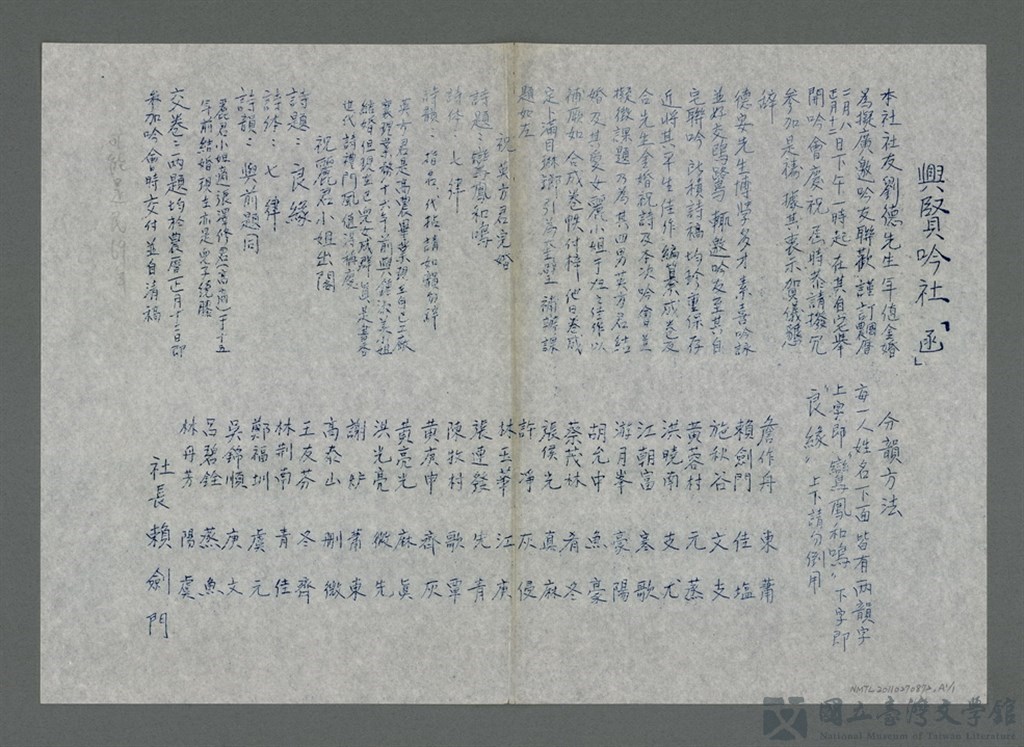 興賢吟社「函」
本社社友劉德先生年值金婚
為擬廣邀吟友聯歡謹訂國曆
二月八
正月十二日下午一時起在其自宅舉
開吟會慶祝 屆時恭請撥冗
參加是禱 據其表示賀儀懇
辭
德安先生博學多才素喜吟詠
並好交鷗鷺 輒邀吟友至其自
宅聯吟 所積詩稿均珍重保存
近將其平生佳作編纂成卷及
合先生金婚祝詩及本次吟會並
擬徵課題乃為其四男英方君結
婚及其愛女麗小姐于
補厥如 合成卷帙付梓 他日卷成
定卜滿目琳瑯引為至墾 謝謝課
題如左
祝英方君完婚
詩題:鸞鳳和鳴
詩体:七律
詩韻:指名代拈請如韻勿辭
英方君是高農畢業現
結婚但現在已兒女成群真是書香
世代 詩禮門風值得稱慶
祝麗君小姐出閣
詩題:良緣
詩体:七律
詩韻:與前題同
麗君小姐適張澤修君
年前結婚現在亦是兒子繞膝
交卷:兩題均於農曆正月十二日即
參加吟會時交付並自清稿
分韻方法
每一人姓名下面皆有兩韻字
上字即“鸞鳳和鳴”下字即
“良緣”上下請勿倒用
詹作舟 東 蕭
賴劍門 佳 塩
施秋谷 文 支
黃蓉村 元 蒸
洪曉南 支 尤
江朝富 寒 歌
游月峯 豪 陽
胡允中 魚 豪
蔡茂林 肴 冬
張侯光 真 麻
許凈 灰 侵
林玉華 江 庚
張連發 先 青
陳牧村 歌 覃
黃庚申 齊 灰
黃亮光 麻 真
洪光亮 微 先
謝炉 蕭 東
高泰山 刪 微
王友芬 冬 齊
林荆南 青 佳
鄭福圳 虞 元
吳錦順 庚 文
呂碧銓 蒸 魚
林丹芳 陽 虞
社長 賴劍門
NMTL20110270872_A1/1
國立臺灣文學館
National Museum of Taiwan Literature